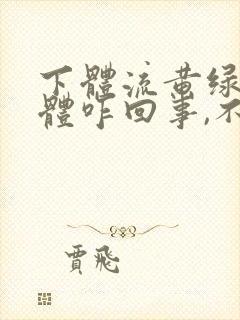 下體流黄绿
體咋回事,不
賈飛